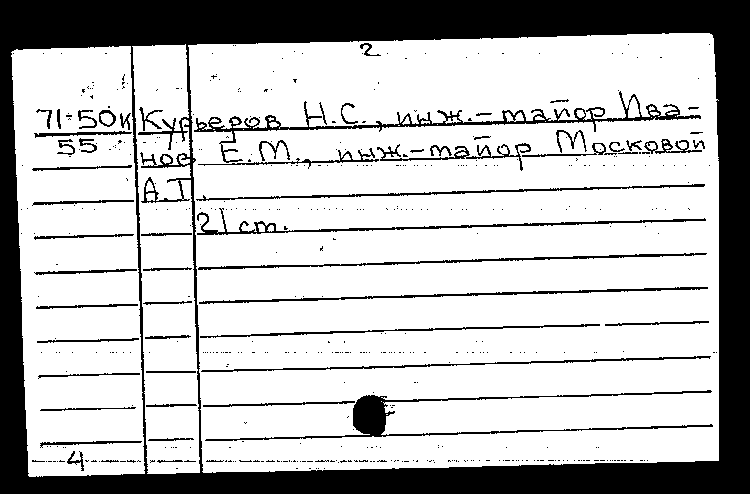 2
71-50к Курьеров Н.С., инж.-майор Ива-
55 нов Е.М., инж.-майор Московой
А.Т.
21 ст.
4